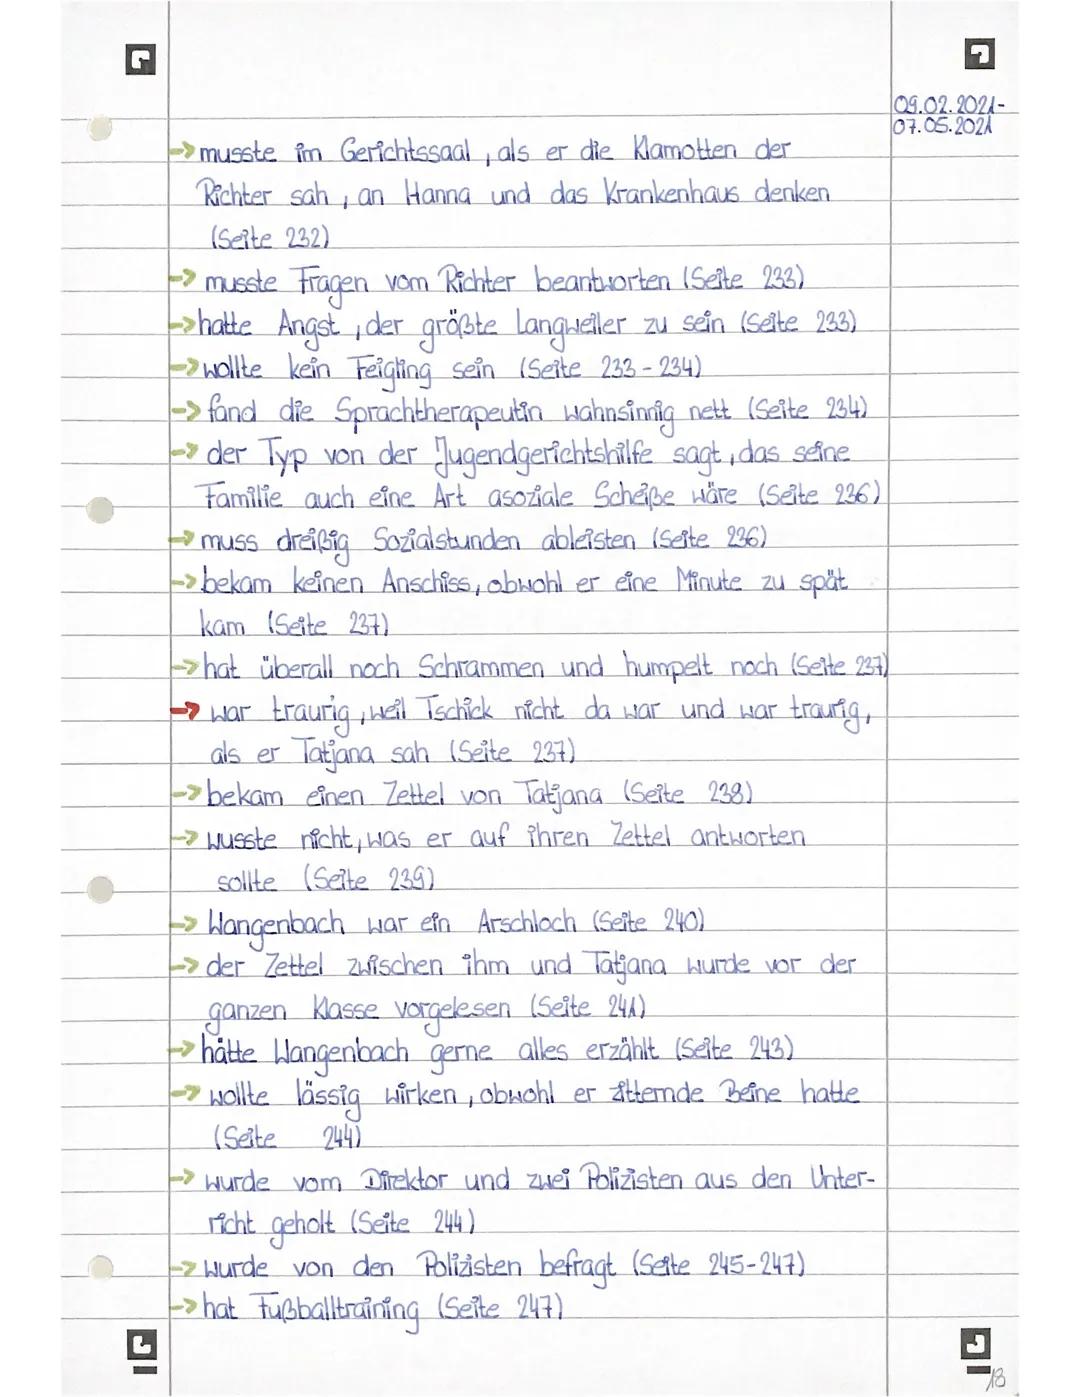 09.02.2021-
07.05.2021
→ musste im Gerichtssaal, als er die Klamotten der
Richter sah, an Hanna und das Krankenhaus denken
(Seite 232)
→ musste Fragen vom Richter beantworten (Seite 233)
→ hatte Angst, der größte Langweiler zu sein (Seite 233)
→ wollte kein Feigling sein (Seite 233-234)
→ fand die Sprachtherapeutin wahnsinnig nett (Seite 234)
→ der Typ von der Jugendgerichtshilfe sagt, das seine
Familie auch eine Art asoziale Scheiße wäre (Seite 236)
→ muss dreißig Sozialstunden ableisten (Seite 236)
→ bekam keinen Anschiss, obwohl er eine Minute zu spät
kam (Seite 237)
→ hat überall noch Schrammen und humpelt noch (Seite 237)
→ war traurig, weil Tschick nicht da war und war traurig,
als er Tatjana sah (Seite 237)
→ bekam einen Zettel von Tatjana (Seite 238)
→ wusste nicht, was er auf ihren Zettel antworten
sollte (Seite 239)
→ Wangenbach war ein Arschloch (Seite 240)
→ der Zettel zwischen ihm und Tatjana wurde vor der
ganzen Klasse vorgelesen (Seite 241)
→ hätte Wangenbach gerne alles erzählt (Seite 243)
→ wollte lässig wirken, obwohl er zitternde Beine hatte
(Seite 244)
→ wurde vom Direktor und zwei Polizisten aus den Unter-
richt geholt (Seite 244)
→ wurde von den Polizisten befragt (Seite 245-247)
→ hat Fußballtraining (Seite 247)
18